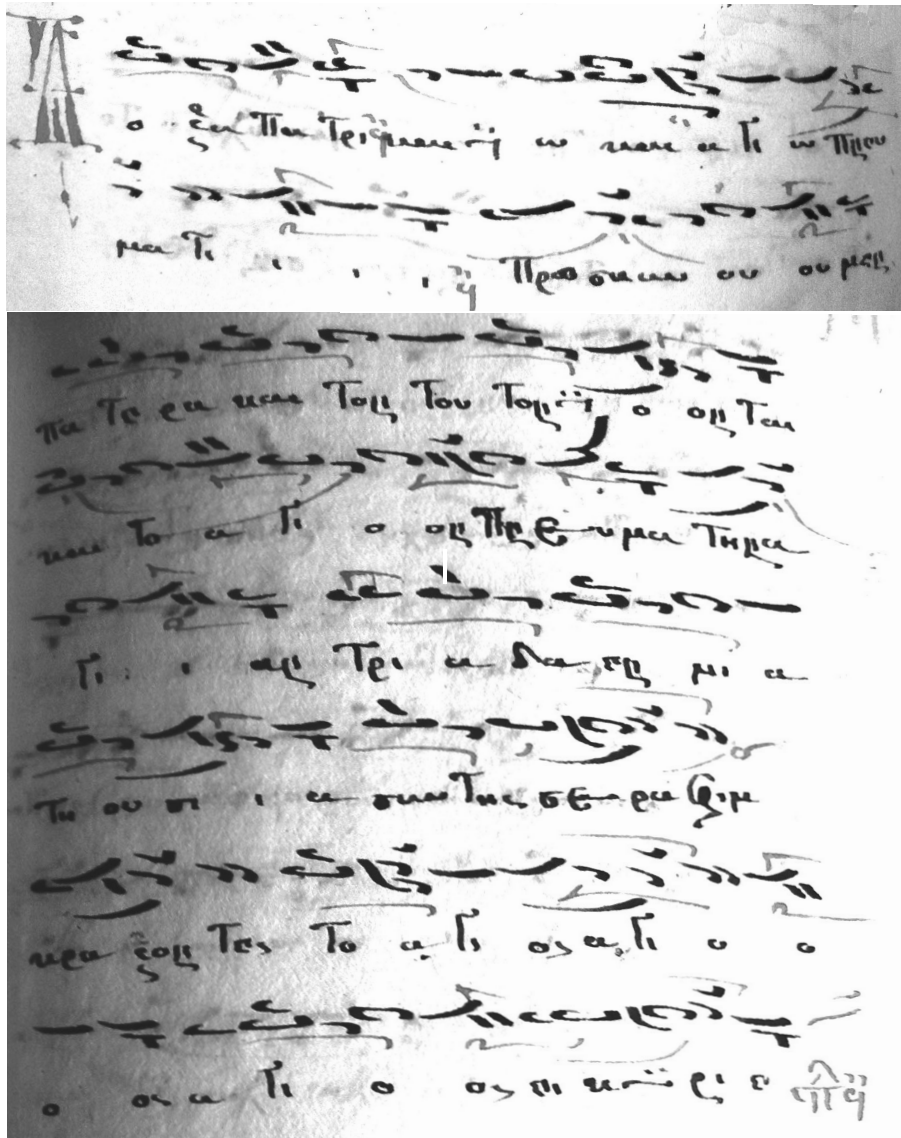 Δο ξα πα τρι και υι ω και α γι ω πνευ
μα τι ι ι ι προσκυν ου ουμεν
πα τε ρα και τον του του υι ο ον ται
και το α γι ο ον πν ε υμα την α
γι ι αν τρι α δα εν μι α
τη ου σι ι α συν της σε ρα φιμ
κρα ζον τες το α γι ος α γι ο ο
ο ος α γι ο ος ει κυ ρι ε